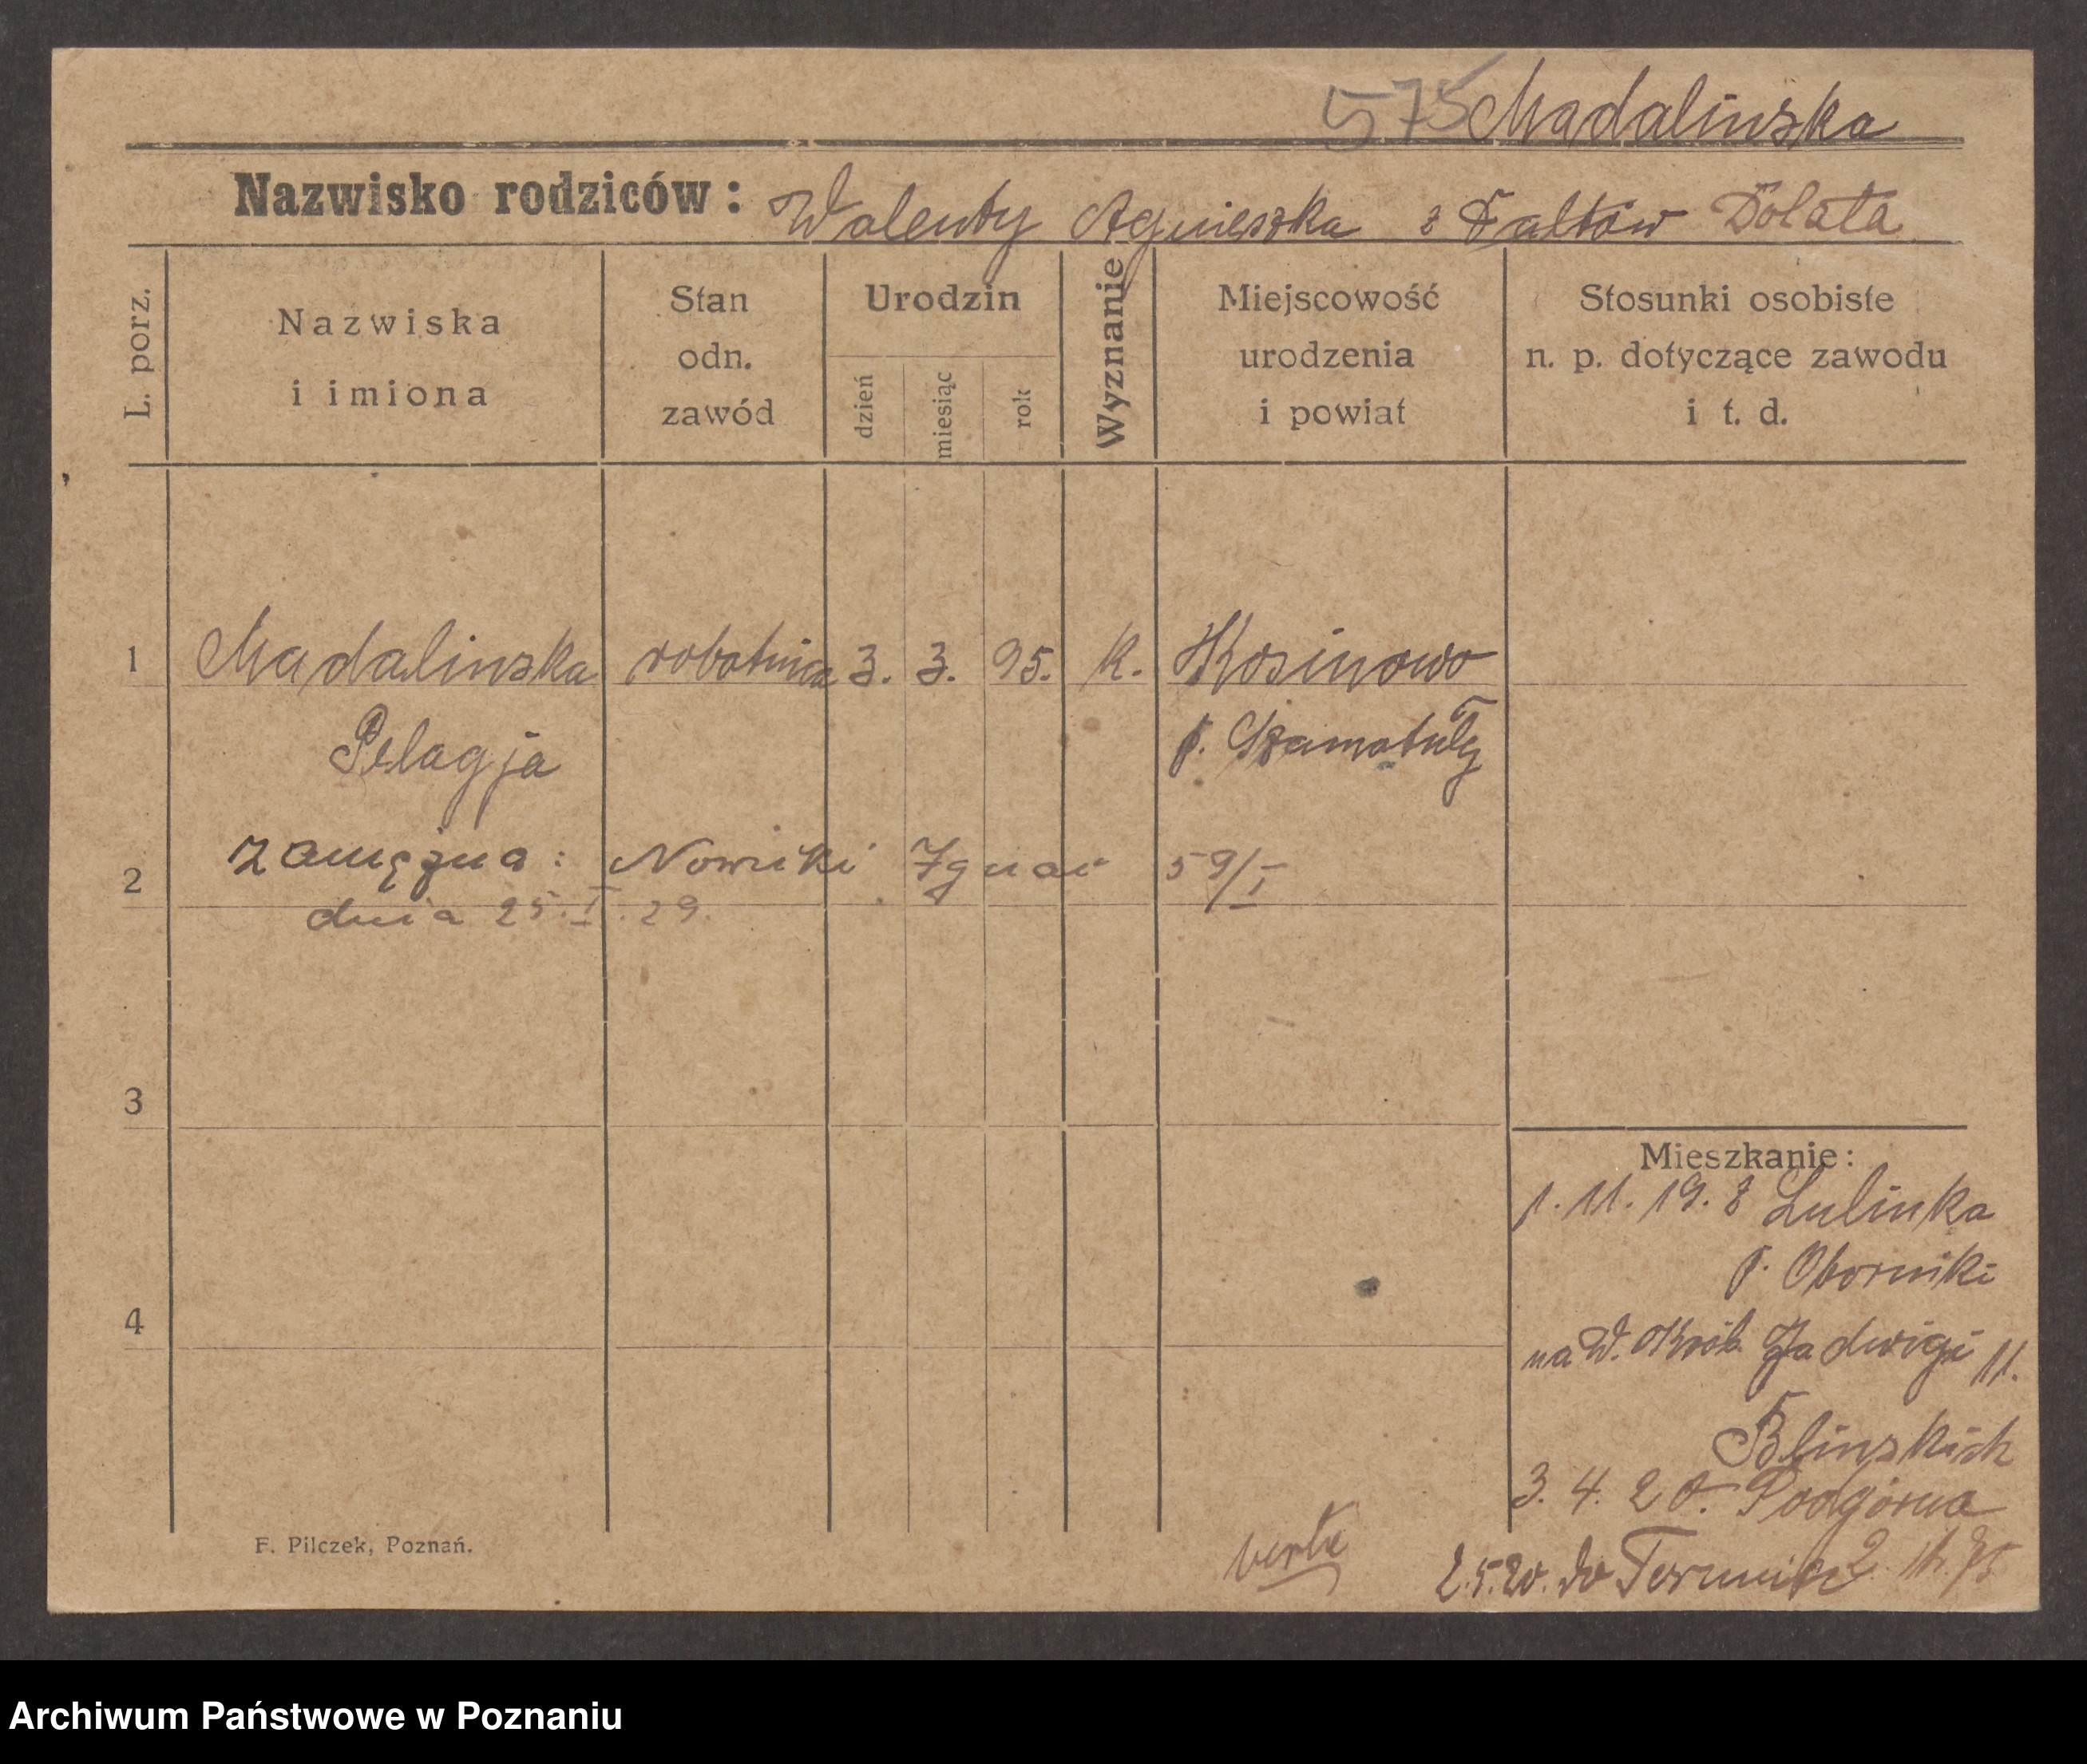 575 Madalinska
Nazwisko rodziców: Walenty Agnieszka z Faltów Dolata
L. porz.
Nazwiska
i imiona
Stan
odn.
zawód
Urodzin
dzień
miesiąc
rok
Wyznanie
Miejscowość
urodzenia
i powiat
Stosunki osobiste
n. p. dotyczące zawodu
i t. d.
1 Madalinska robotnica 3. 3. 95. k. Kosinowo
Pelagja p. Szamotuły
2 zamężna: Nowicki Ignac 59/I
dnia 25. I. 29.
3
Mieszkanie:
1. 11. 19. z Lulinka
p. Oborniki
4
na W. Król. Jadwigi 11.
Blinskich
3. 4. 20. Podgórna
2.5.20. do
verte
F. Pilczek, Poznań.
Archiwum Państwowe w Poznaniu